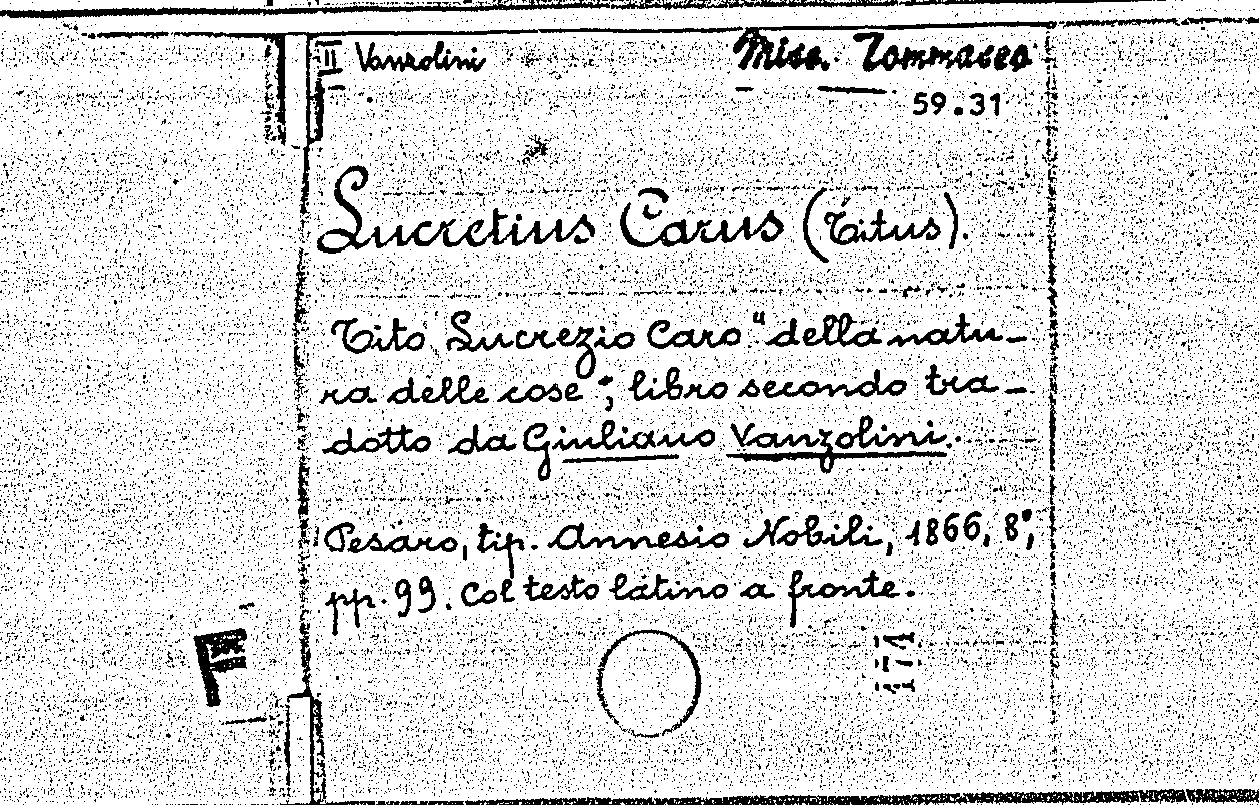 II Vanzolini
Misc. Tommaseo
59.31
Lucretius Carus (Titus).
Tito Lucrezio Caro "della natu-
ra delle cose"; libro secondo tra-
dotto da Giuliano Vanzolini.
Pesaro, tip. Annesio Nobili, 1866, 8°,
pp. 99. Col testo latino a fronte.
174
F